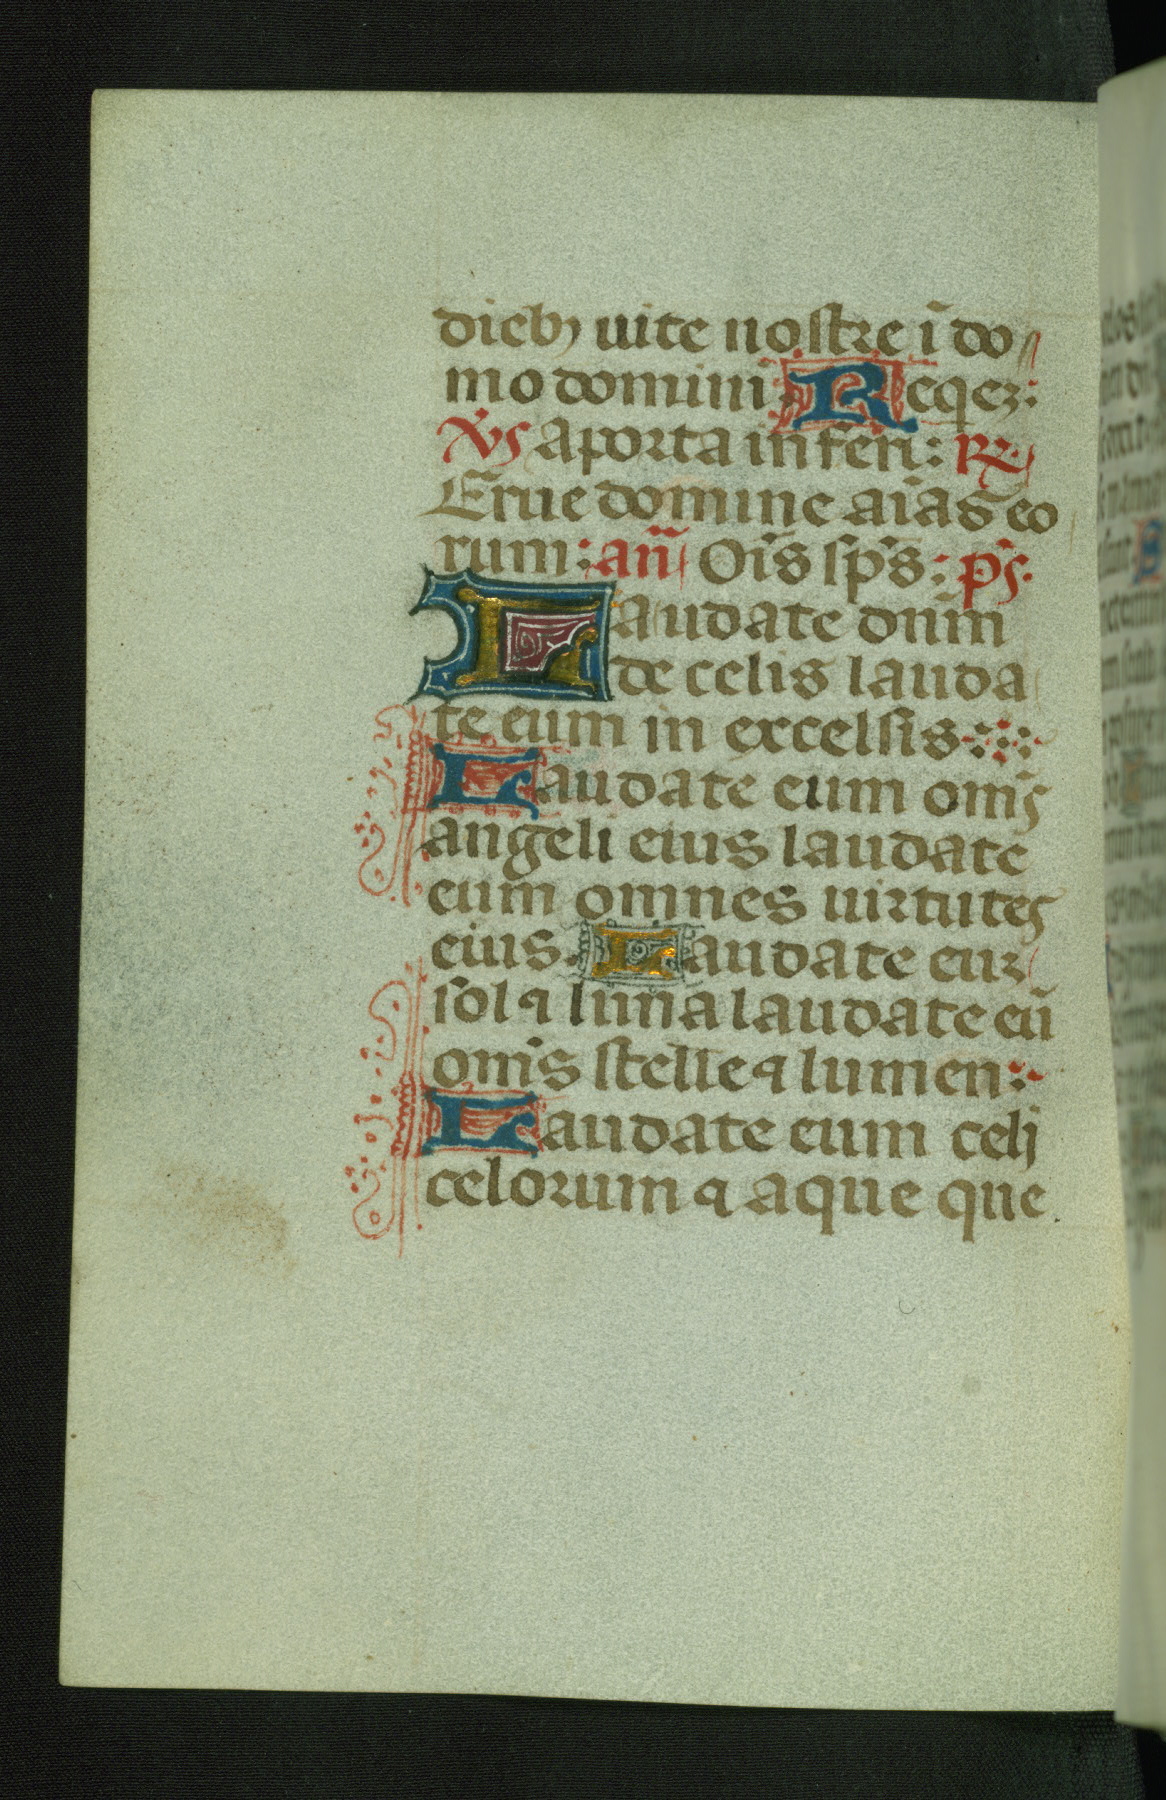 dieb⁊ uite nostre ī do
mo domini Reqeꝫ:
Vs A porta inferi: R
Erue domine aīas eo
rum: an̄ Oīs sp̄s: ps.
Laudate dnm̄
de celis lauda
te eum in excelsis
Laudate eum om̄s
angeli eius laudate
eum omnes uirtutes
eius. Laudate euꝫ
sol ⁊ luna laudate eū
om̄s stelle ⁊ lumen:
Laudate eum celi
celorum ⁊ aque que